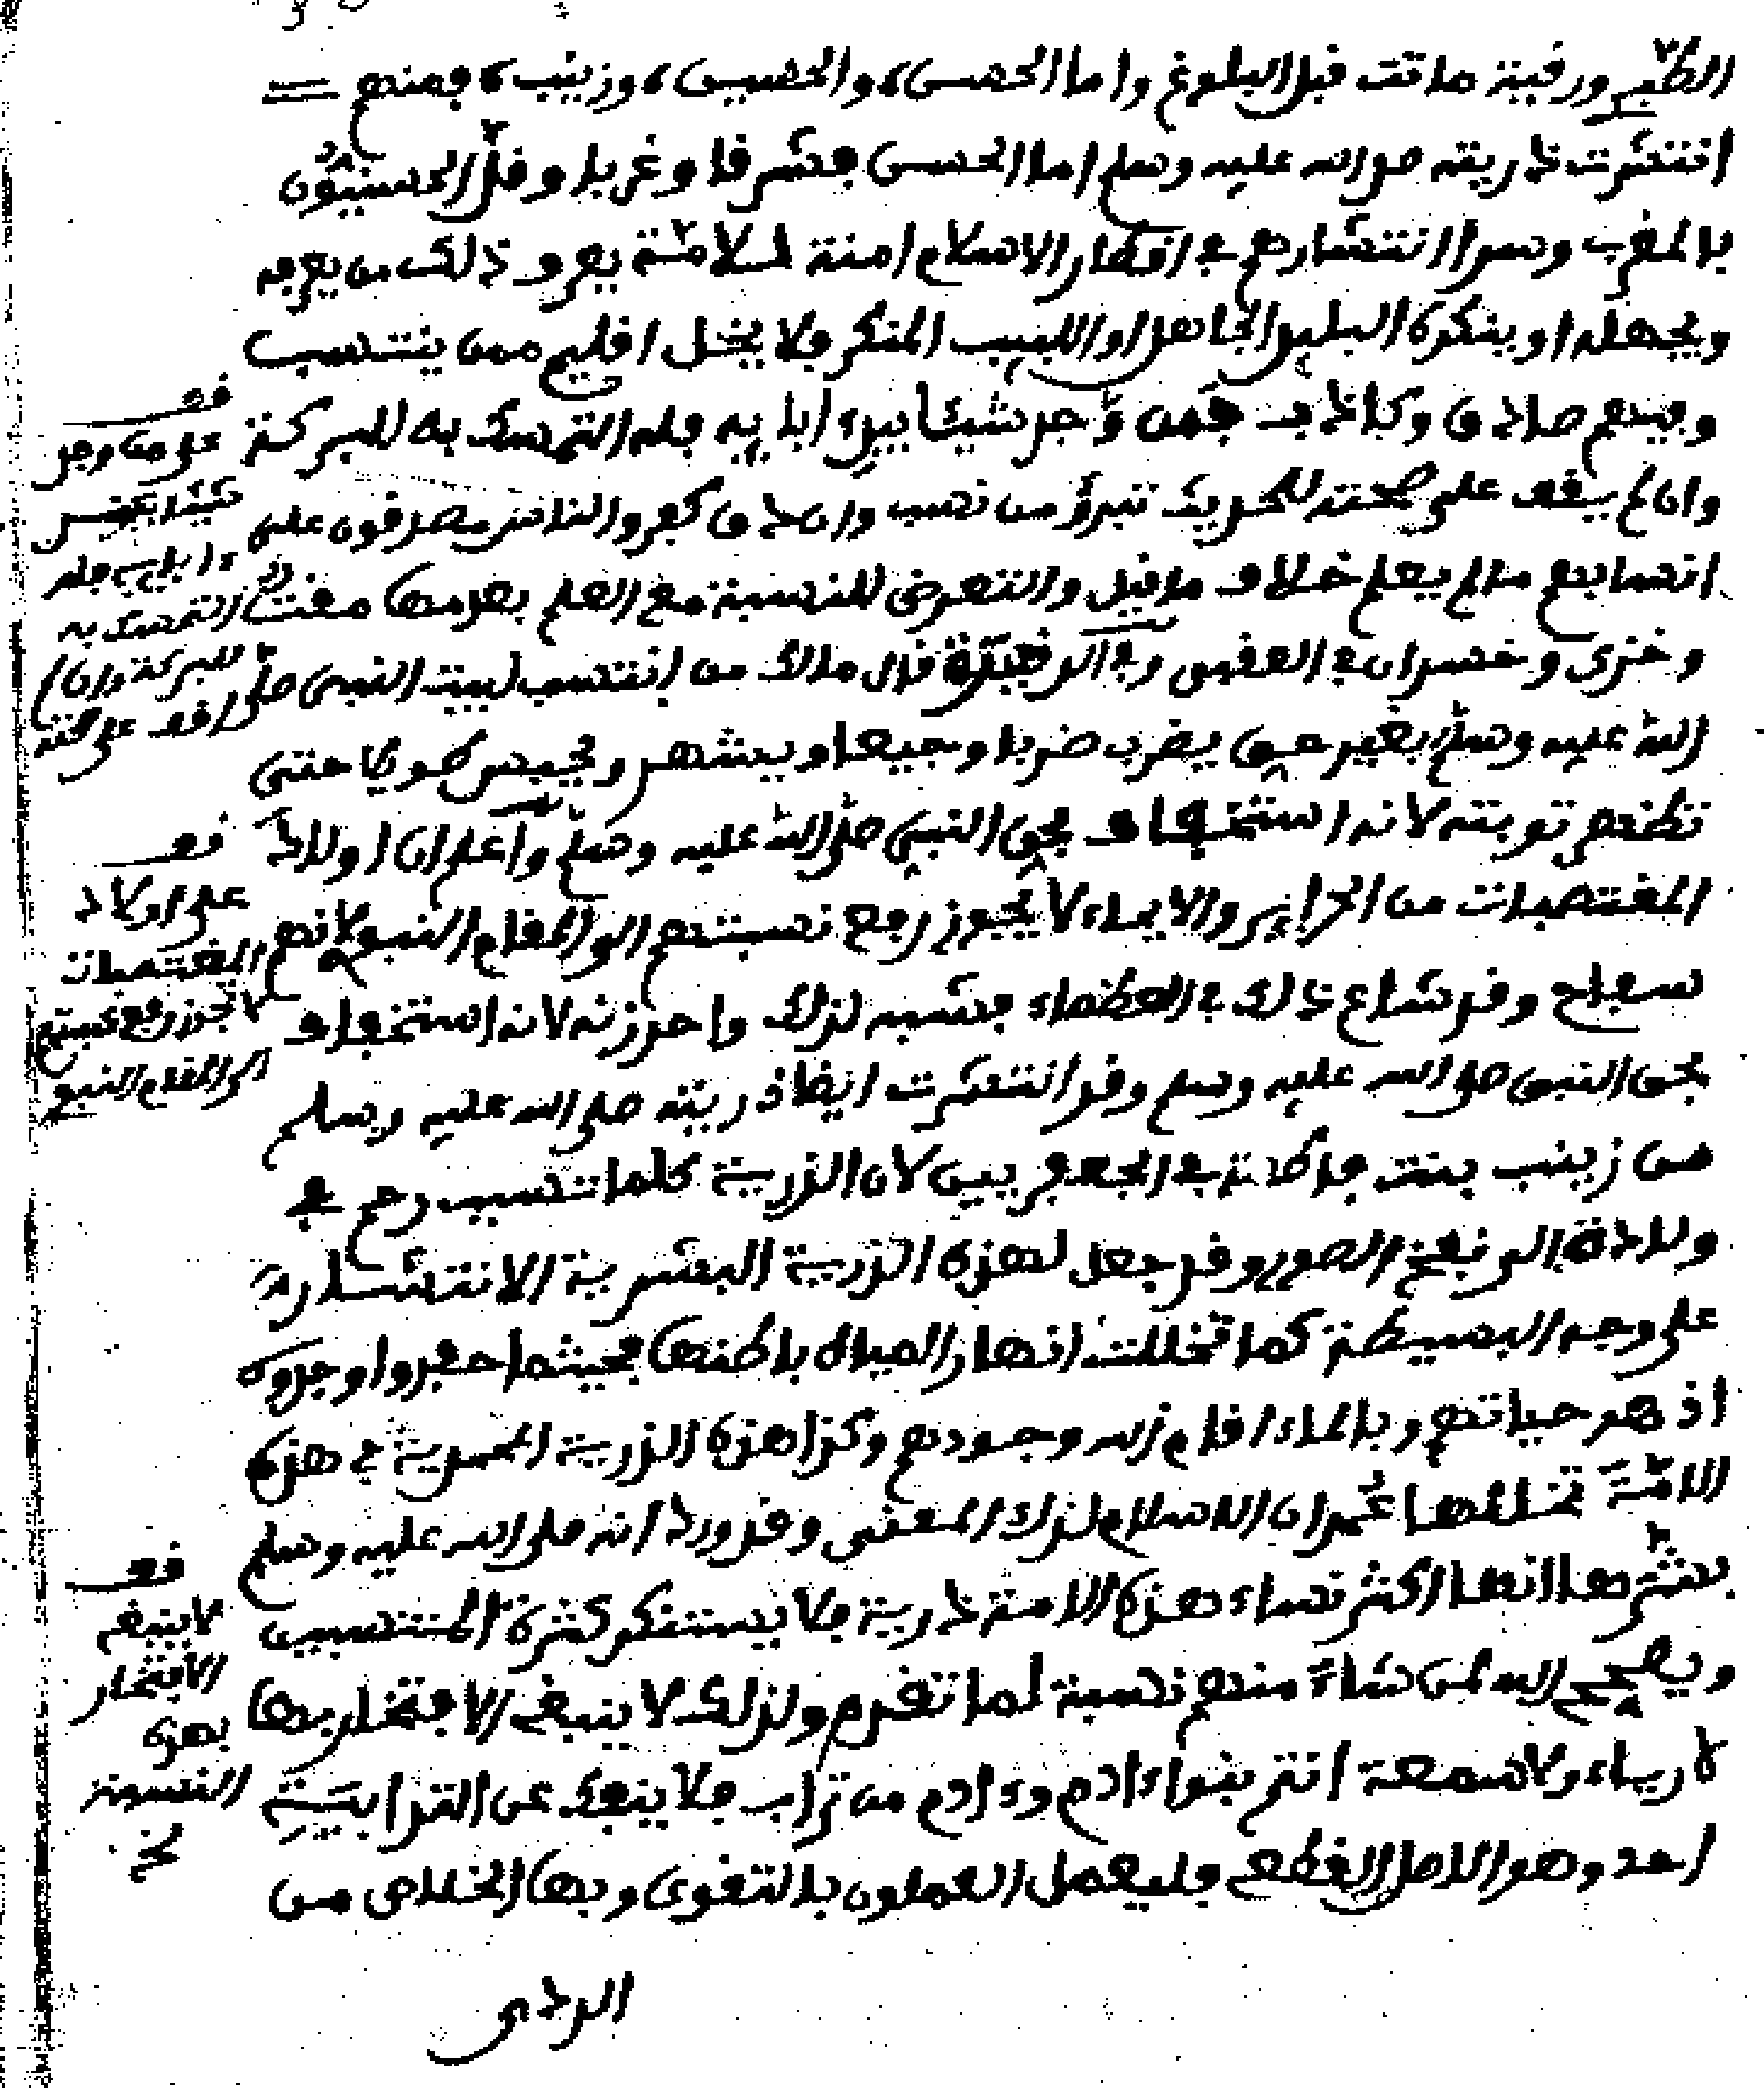 الطف ورقية ماتت قبل البلوغ واما الحسن، والحسين، وزينب، فمنهم
انتشرت ذريته صلى الله عليه وسلم اما الحسن فشرقا وغربا وقل الحسنيون
بالمغرب وسر انتشارهم في اقطار الاسلام امنة للامة يعرف ذلك من يعرفه
ويجهله او ينكره البليد الجاهل او اللبيب المنكر فلا يخل اقليم ممن ينتسب
وفيهم صادق وكاذب فمن وجد شيئا بيد ءابايه فله التمسك به للبركة
وان لم يقف على صحته للحديث تبرؤ من نسب وان دق كفر والناس مصدقون على
انسابهم ما لم يعلم خلاف ما قيل والتعرض للنسبة مع العلم بعدمها مقت
وخزي وخسران في العقبى وفي قال مالك من انتسب لبيت النبي صلى
الله عليه وسلم بغير حق يضرب ضربا وجيعا ويشهر ويحبس طويلا حتى
تظهر توبته لانه استخفاف بحق النبي صلى الله عليه وسلم واعلم ان اولاد
المغتصبات من الحراير والاماء لا يجوز رفع نسبتهم الى المقام النبوي لانهم
سفاح وقد شاع ذلك في العظماء فتنبه لذلك واحذرنه لانه استخفاف
بحق النبي صلى الله عليه وسلم وقد انتشرت ايضا ذريته صلى الله عليه وسلم
من زينب بنت فاطمة في الجعفريين لان الذرية كلما تنسب رحم في
ولادة الى نفخ الصور وقد جعل لهذه الذرية البشرية الانتشار
على وجه البسيطة كما تخللت انهار المياه باطنها فحيثما حفروا وجدوه
اذ هو حياتهم وبالماء اقام الله وجودهم وكذا هذه الذرية المحمدية في هذه
الامة تخللها عمران الاسلام لذلك المعنى وقد ورد انه صلى الله عليه وسلم
بشرها انها اكثر نساء هذه الامة ذرية فلا يستنكر كثرة المنتسبين
ويصحح الله لمن شاء منهم نسبة لما تقدم ولذلك لا ينبغي الافتخار بها
لا رياء ولا سمعة انتم بنوا ءادم وءادم من تراب فلا ينفك عن الترابية
احد وهو الاصل القطعي فليعمل العملون بالتقوى وبها الخلاص من
الردى
قف
على من وجد
شيئا بيد
ءابايه فله
التمسك به
للبركة وان لم
يقف على صحته
قف
على اولاد
المغتصبات
لا يجوز رفع نسبتهم
الى المقام النبوي
قف
لا ينبغي
الافتخار
بهذه
النسبة